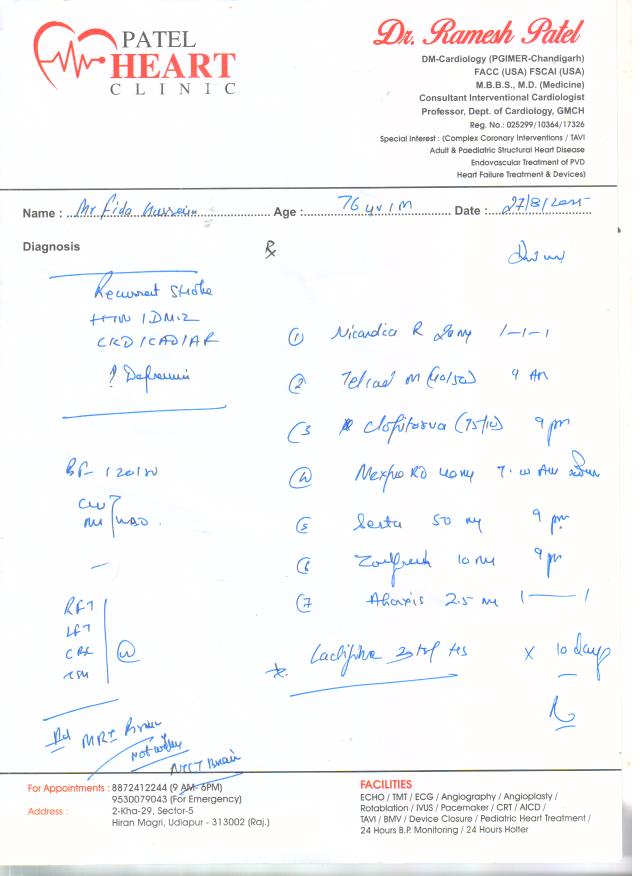 PATEL
HEART
CLINIC
Dr. Ramesh Patel
DM-Cardiology (PGIMER-Chandigarh)
FACC (USA) FSCAI (USA)
M.B.B.S., M.D. (Medicine)
Consultant Interventional Cardiologist
Professor, Dept. of Cardiology, GMCH
Reg. No.: 025299/10364/17326
Special Interest : (Complex Coronary Interventions / TAVI
Adult & Paediatric Structural Heart Disease
Endovascular Treatment of PVD
Heart Failure Treatment & Devices)
Name : Mr Fida Hussain Age : 76 yr / M Date : 27/8/2025
Diagnosis ℞
Recurrent Stroke
HTN / DM-2
CKD / CAD / AF
① Nicardia R 20 mg 1-1-1
② Telcad M (40/50) 9 AM
③ Clopitorva (75/10) 9 pm
BP- 120/80
④ Nexpro RD 40 mg 7.00 AM
⑤ Serta 50 mg 9 pm
⑥ Zolfresh 10 mg 9 pm
⑦ 2.5 mg 1——1
RFT
LFT
CBC
TSH
x 10 days
Ad MRI Brain
NCCT Brain
For Appointments : 8872412244 (9 AM- 6PM)
9530079043 (For Emergency)
Address : 2-Kha-29, Sector-5
Hiran Magri, Udiapur - 313002 (Raj.)
FACILITIES
ECHO / TMT / ECG / Angiography / Angioplasty /
Rotablation / IVUS / Pacemaker / CRT / AICD /
TAVI / BMV / Device Closure / Pediatric Heart Treatment /
24 Hours B.P. Monitoring / 24 Hours Holter